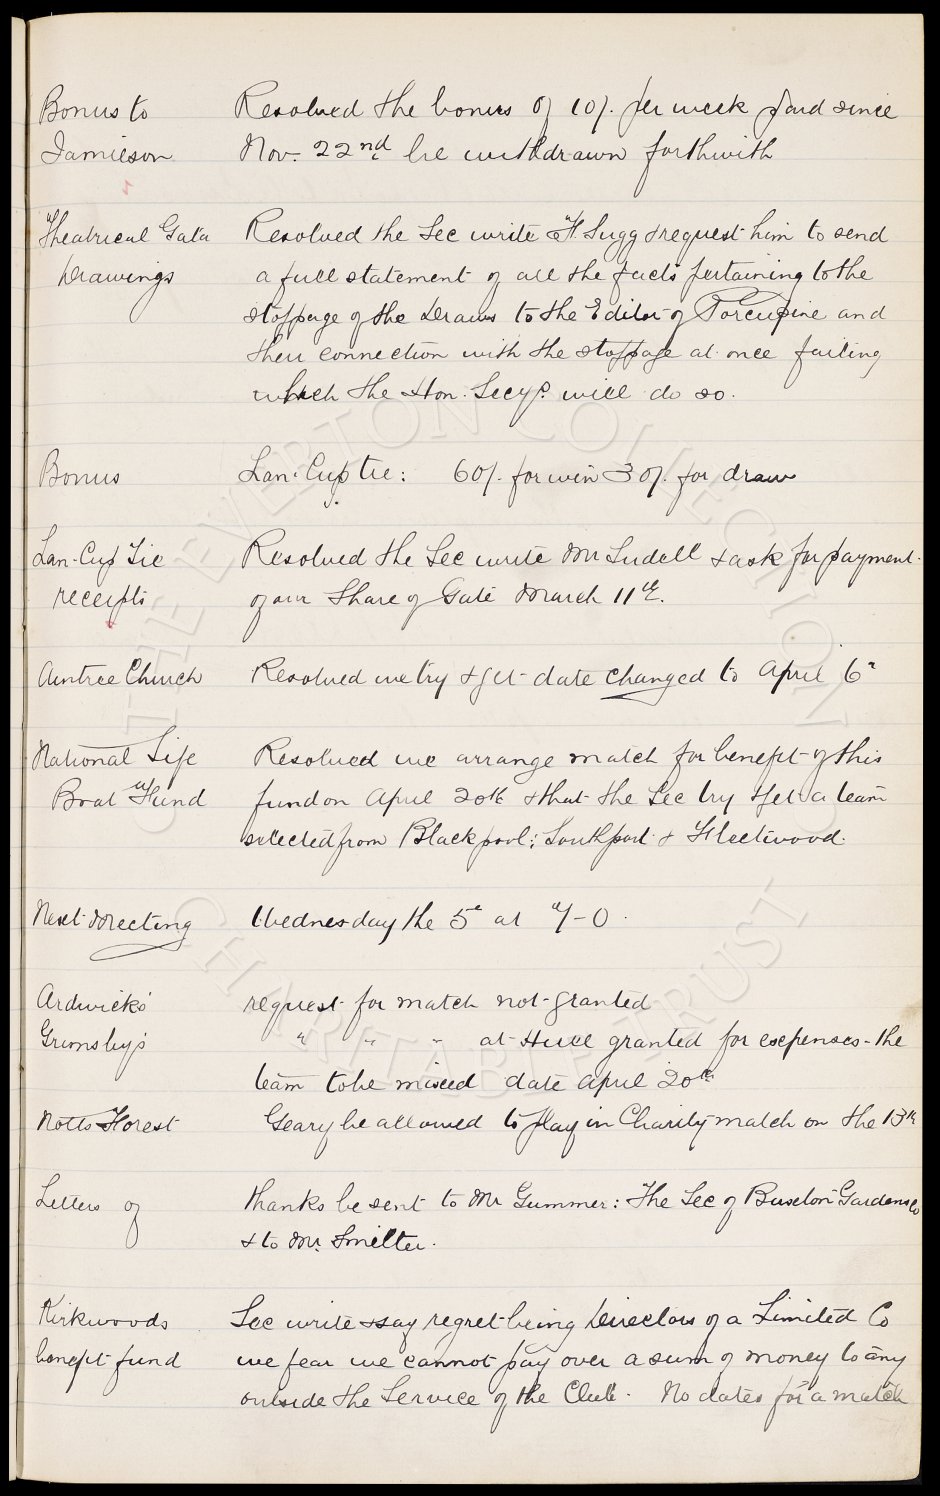 Bonus to Resolved the bonus of 10/. per week paid since
Jamieson Nov. 22nd be withdrawn forthwith
Theatrical Gala Resolved the Sec write F. Sugg & request him to send
Drawings a full statement of all the facts pertaining to the
stoppage of the Draws to the Editor of Porcupine and
their connection with the stoppage at once failing
which the Hon. Secy. will do so.
Bonus Lan. Cup tie: 60/. for win 30/. for draw
Lan. Cup Tie Resolved the Sec write Mr Sudell & ask for payment
receipts of our Share of Gate March 11th.
Aintree Church Resolved we try & get date changed to April 6th
National Life Resolved we arrange match for benefit of this
Boat Fund fund on April 20th & that the Sec try & get a team
selected from Blackpool; Southport & Fleetwood.
Next Meeting Wednesday the 5th at 7-0.
Ardwicks' request for match not granted
Grimsby's " " " at Hull granted for expenses - the
team to be mixed date April 20th
Notts Forest Geary be allowed to play in Charity match on the 13th
Letters of thanks be sent to Mr Gummer: The Sec of Gardens Co
& to Mr. Smelter.
Kirkwoods Sec write & say regret being Directors of a Limited Co
benefit fund we fear we cannot pay over a sum of money to any
outside the Service of the Club. No dates for a match
THE EVERTON COLLECTION
CHARITABLE TRUST